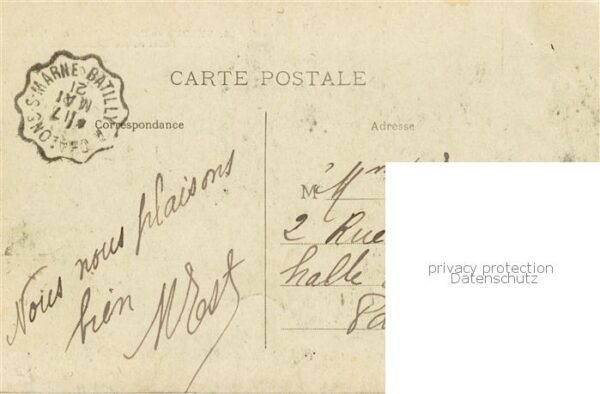 CARTE POSTALE
CHALONS-S-MARNE-BATILLY
17
MAI
21
Correspondance
Adresse
Nous nous plaisons
bien
M
2 Rue
halle
privacy protection
Datenschutz